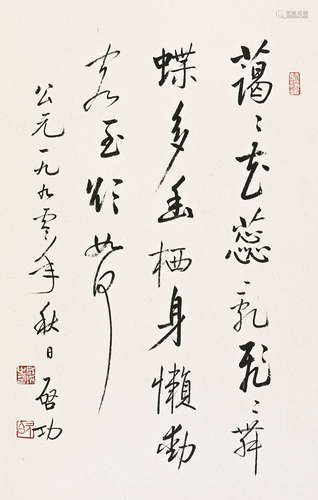 藹〻花蕊亂飛〻蜂
蝶多幽栖身懶動
客至欲如何
公元一九九零年秋日 啓功